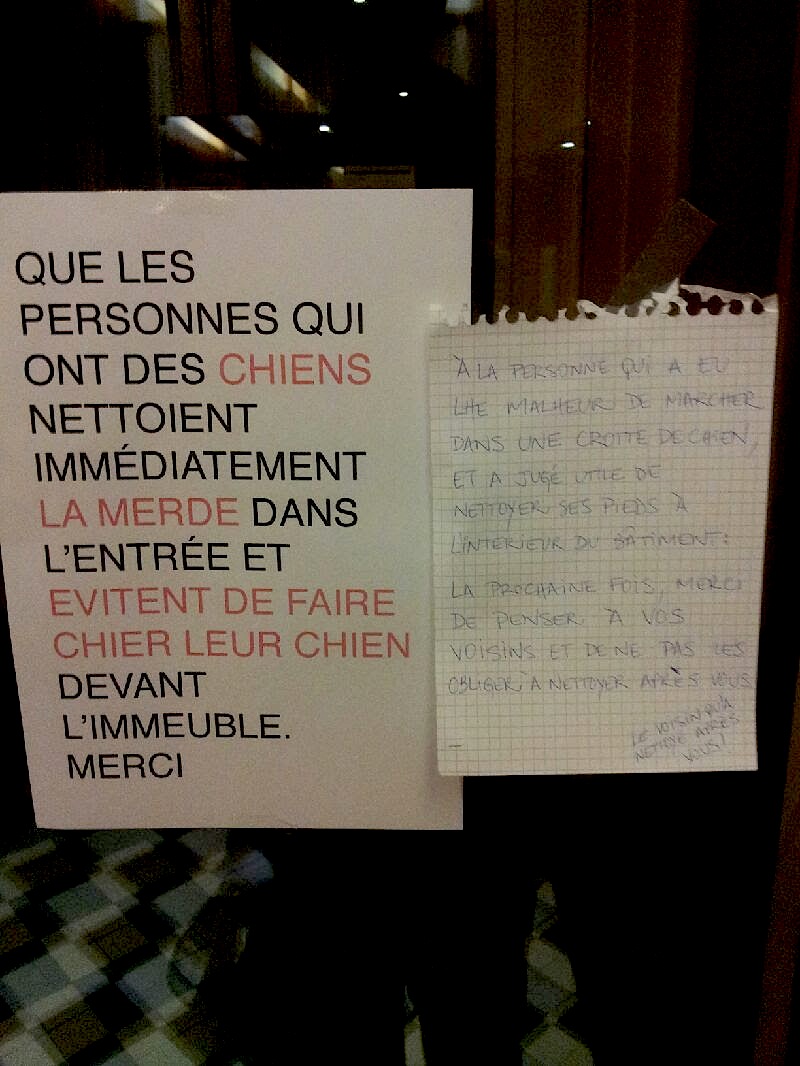 QUE LES
PERSONNES QUI
ONT DES CHIENS
NETTOIENT
IMMÉDIATEMENT
LA MERDE DANS
L'ENTRÉE ET
EVITENT DE FAIRE
CHIER LEUR CHIEN
DEVANT
L'IMMEUBLE.
MERCI
À LA PERSONNE QUI A EU
LHE MALHEUR DE MARCHER
DANS UNE CROTTE DE CHIEN,
ET A JUGÉ UTILE DE
NETTOYER SES PIEDS À
L'INTERIEUR DU BÂTIMENT:
LA PROCHAINE FOIS, MERCI
DE PENSER À VOS
VOISINS ET DE NE PAS LES
OBLIGER À NETTOYER APRÈS VOUS
LE VOISIN QUI A
NETTOYÉ APRÈS
VOUS!